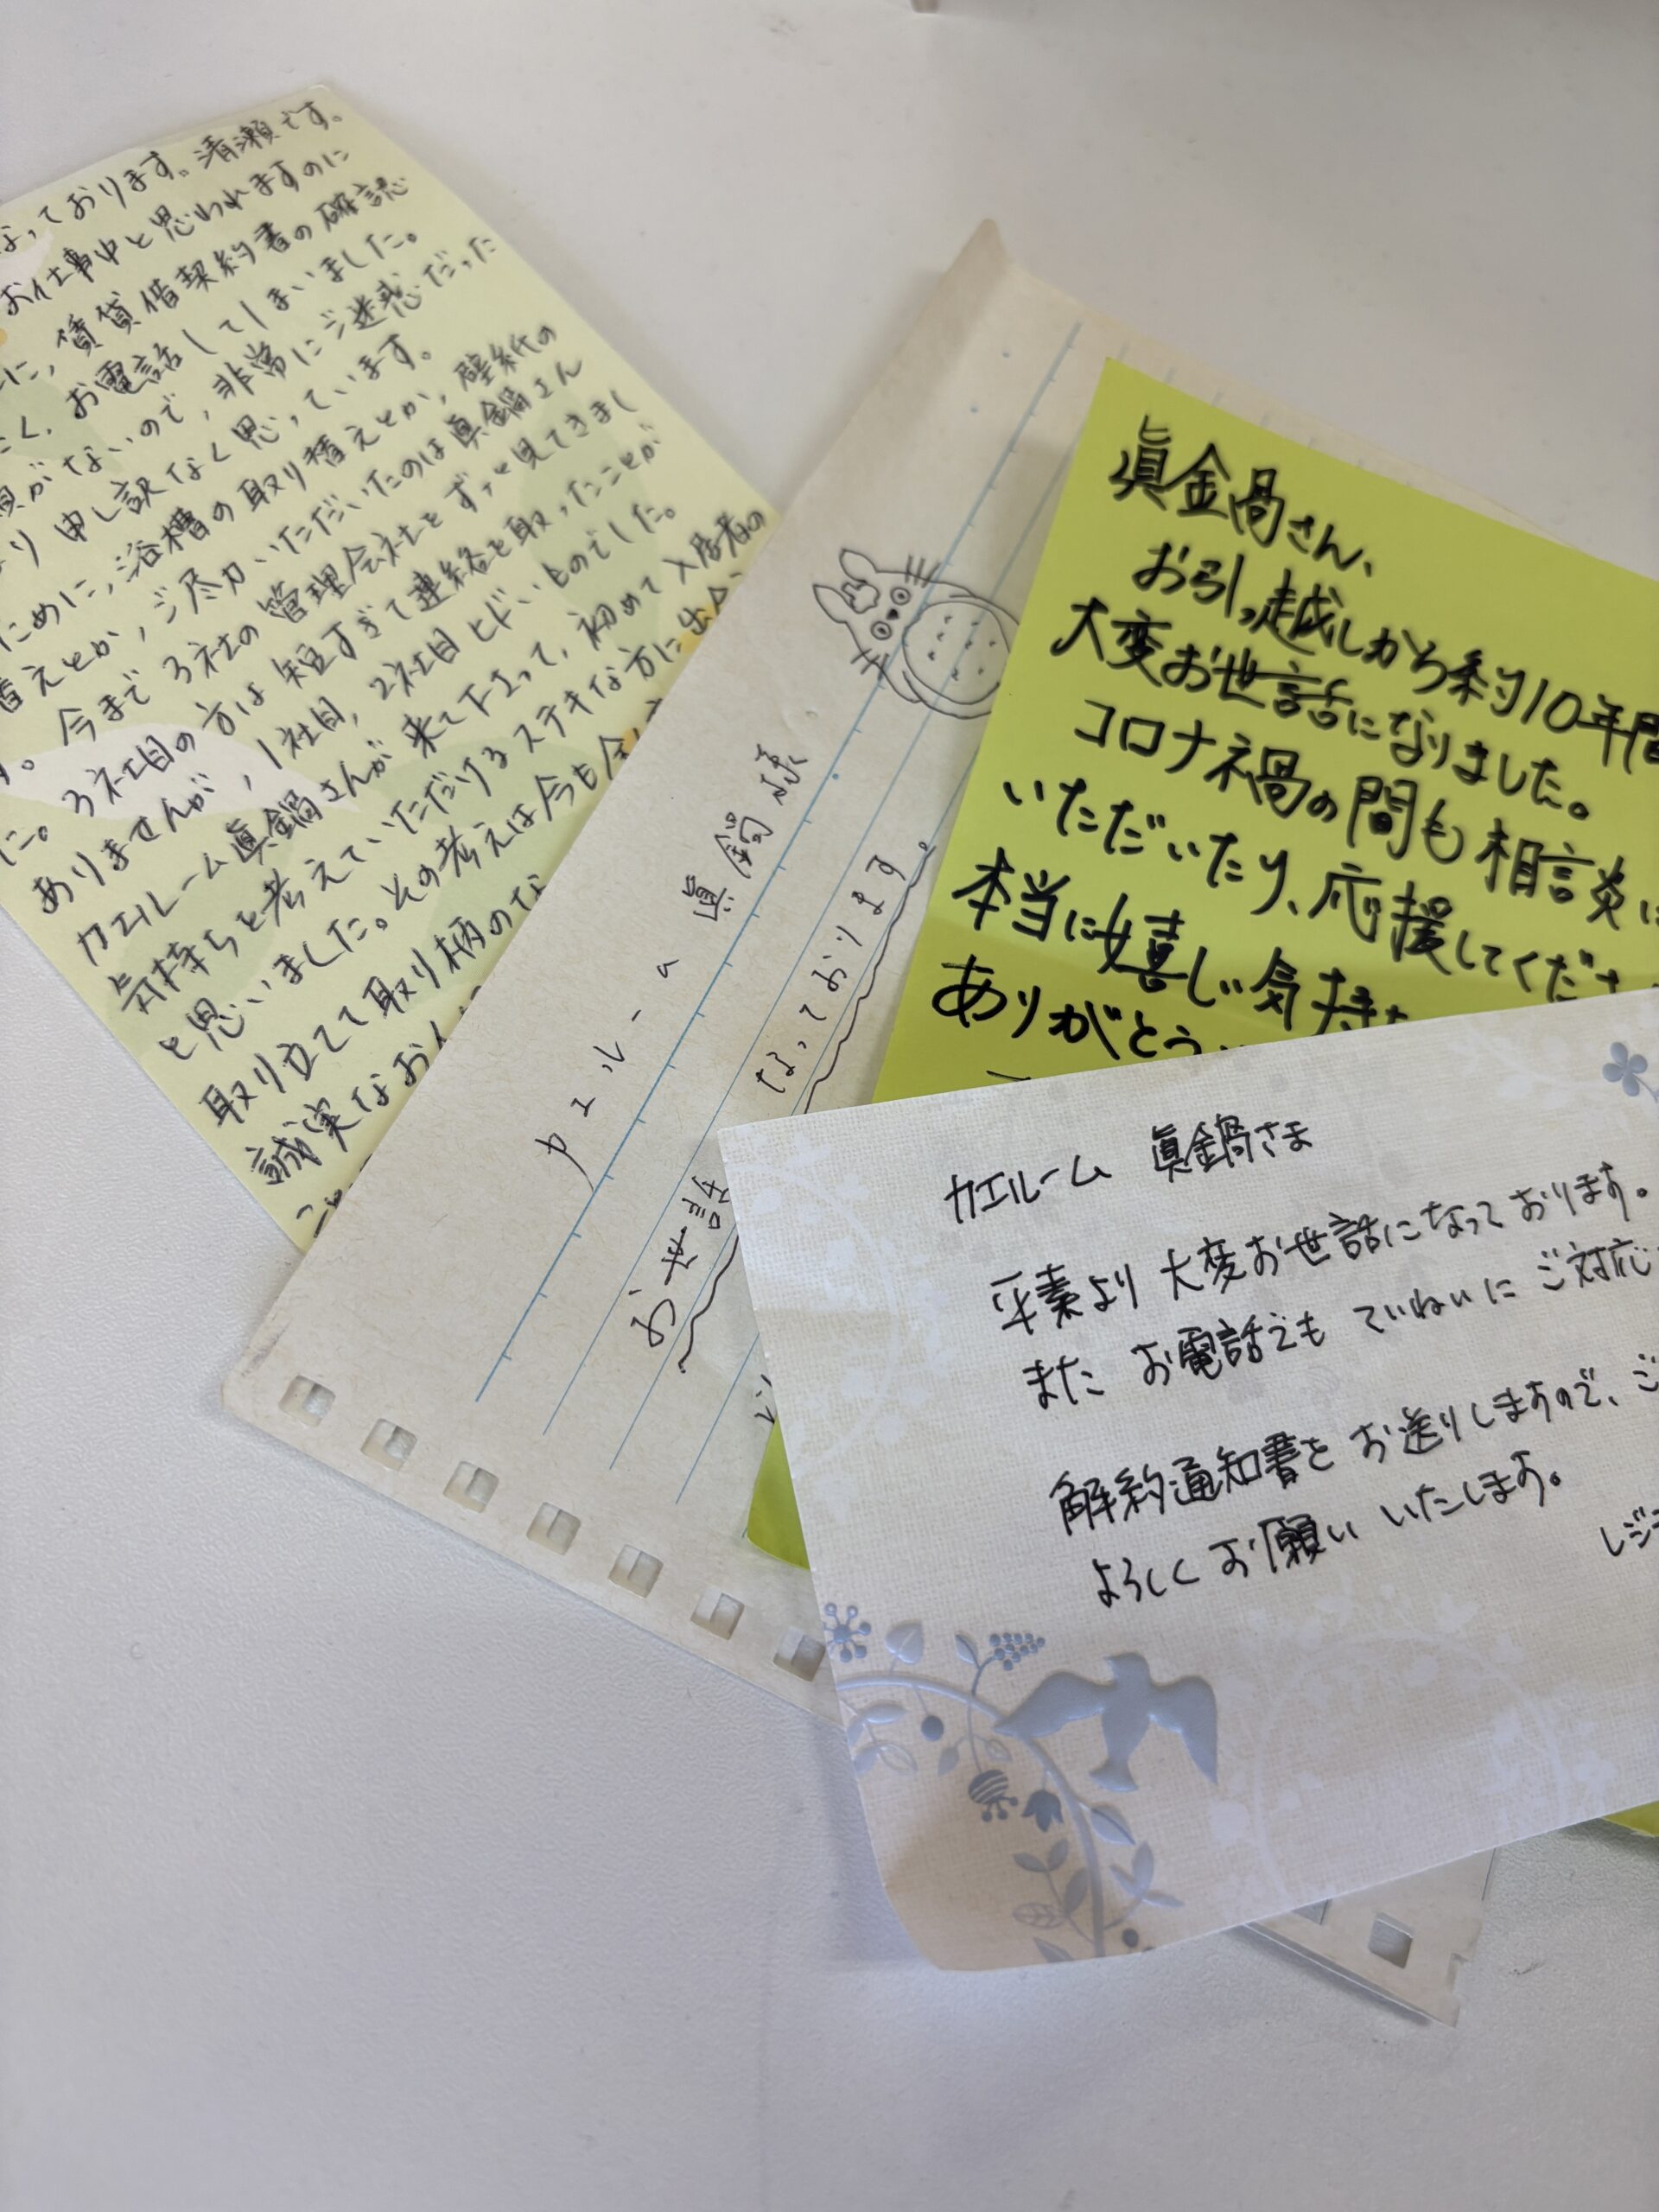 なっております。清瀬です。
お仕事中と思われますのに
に、賃貸借契約書の確認
く、お電話してしまいました。
がないので、非常にご迷惑だった
り申し訳なく思っています。
ために、浴槽の取り替えとか、壁紙の
替えとか、ご尽力いただいたのは眞鍋さん
す。今まで3社の管理会社をずっと見てきまし
た。3社目の方は短すぎて連絡を取ったことが
ありませんが、1社目、2社目ヒドいものでした。
カエルーム眞鍋さんが来て下さって、初めて入居者の
気持ちを考えていただけるステキな方に出会
と思いました。その考えは今も全
取り立てて取り柄のな
誠実なお
カエルーム 眞鍋様
お世話 なっております。
眞鍋さん、
お引っ越しから約10年間
大変お世話になりました。
コロナ禍の間も相談に
いただいたり、応援してくださ
本当に嬉しい気持
ありがとう
カエルーム 眞鍋さま
平素より大変お世話になっております。
また お電話でも ていねいに ご対応
解約通知書を お送りしますので、ご
よろしくお願い いたします。
レジ